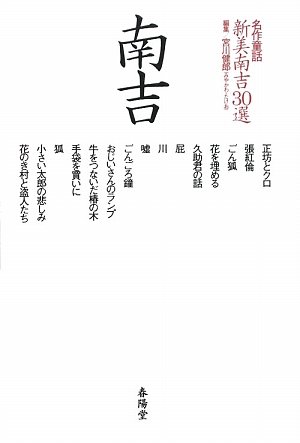 名作童話
新美南吉30選
編集 宮川健郎 みやかわ・たけお
南吉
正坊とクロ
張紅倫
ごん狐
花を埋める
久助君の話
屁
川
嘘
ごんごろ鐘
おじいさんのランプ
牛をつないだ椿の木
手袋を買いに
狐
小さい太郎の悲しみ
花のき村と盗人たち
春陽堂